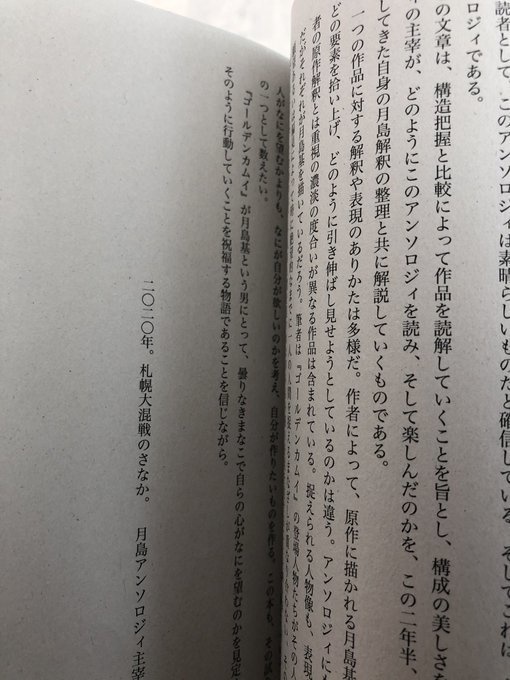 読者として、このアンソロジィは素晴らしいものだと確信している。そしてこれは
ロジィである。
の文章は、構造把握と比較によって作品を読解していくことを旨とし、構成の美しさを
ィの主宰が、どのようにこのアンソロジィを読み、そして楽しんだのかを、この二年半、
してきた自身の月島解釈の整理と共に解説していくものである。
一つの作品に対する解釈や表現のありかたは多様だ。作者によって、原作に描かれる月島基
どの要素を拾い上げ、どのように引き伸ばし見せようとしているのかは違う。アンソロジィにも
者の原作解釈とは重視の濃淡の度合いが異なる作品は含まれている。捉えられる人物像も、表現
だがそれぞれが月島基を描いているだろう。筆者は『ゴールデンカムイ』の登場人物たちがその人
人がなにを望むかよりも、なにが自分が欲しいのかを考え、自分が作りたいものを作る。この本も、その
の一つとして数えたい。
『ゴールデンカムイ』が月島基という男にとって、曇りなきまなこで自らの心がなにを望むのかを見定
そのように行動していくことを祝福する物語であることを信じながら。
二〇二〇年。札幌大混戦のさなか。
月島アンソロジィ主宰